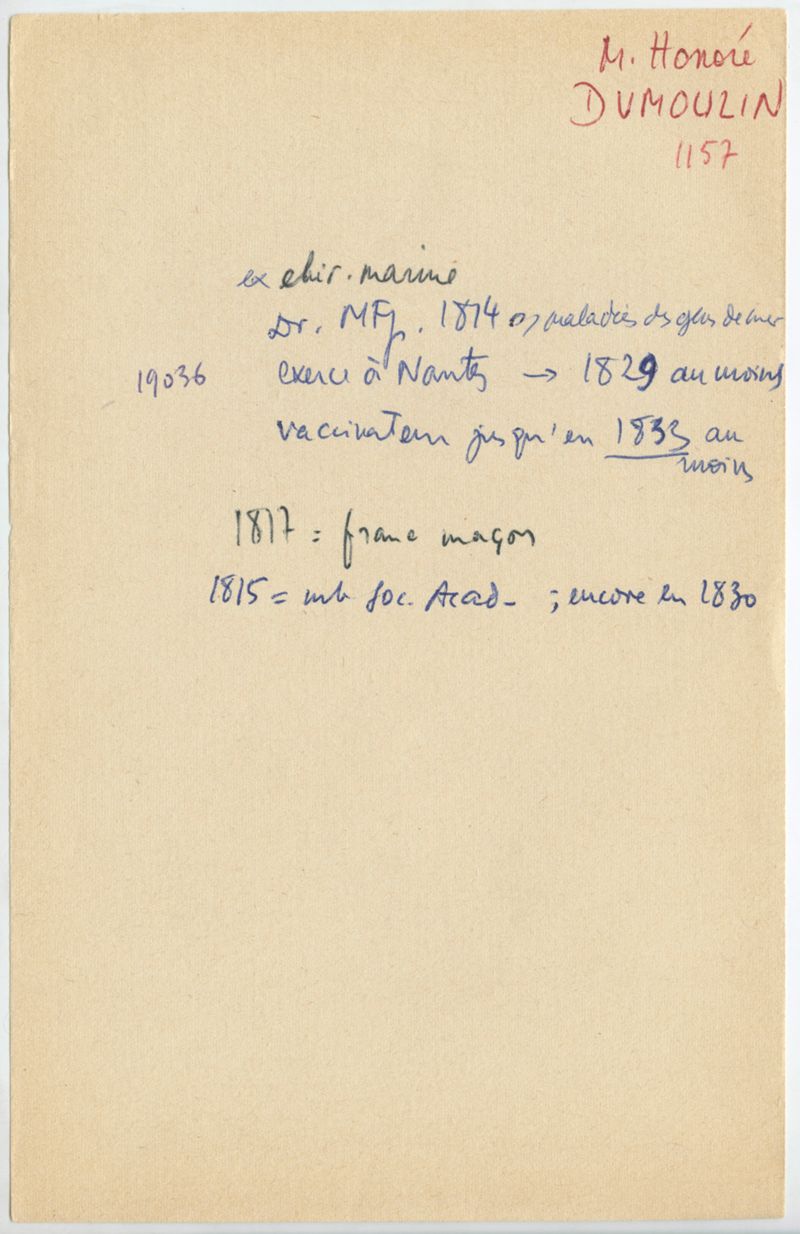 M. Honoré
DUMOULIN
1157
ex chir. marine
Dr. MFp. 1814 maladies des gens de mer
19036 exerce à Nantes → 1829 au moins
vaccinateur jusqu'en 1833 au
moins
1817 = franc maçon
1815 = mb Soc. Acad- ; encore en 1830